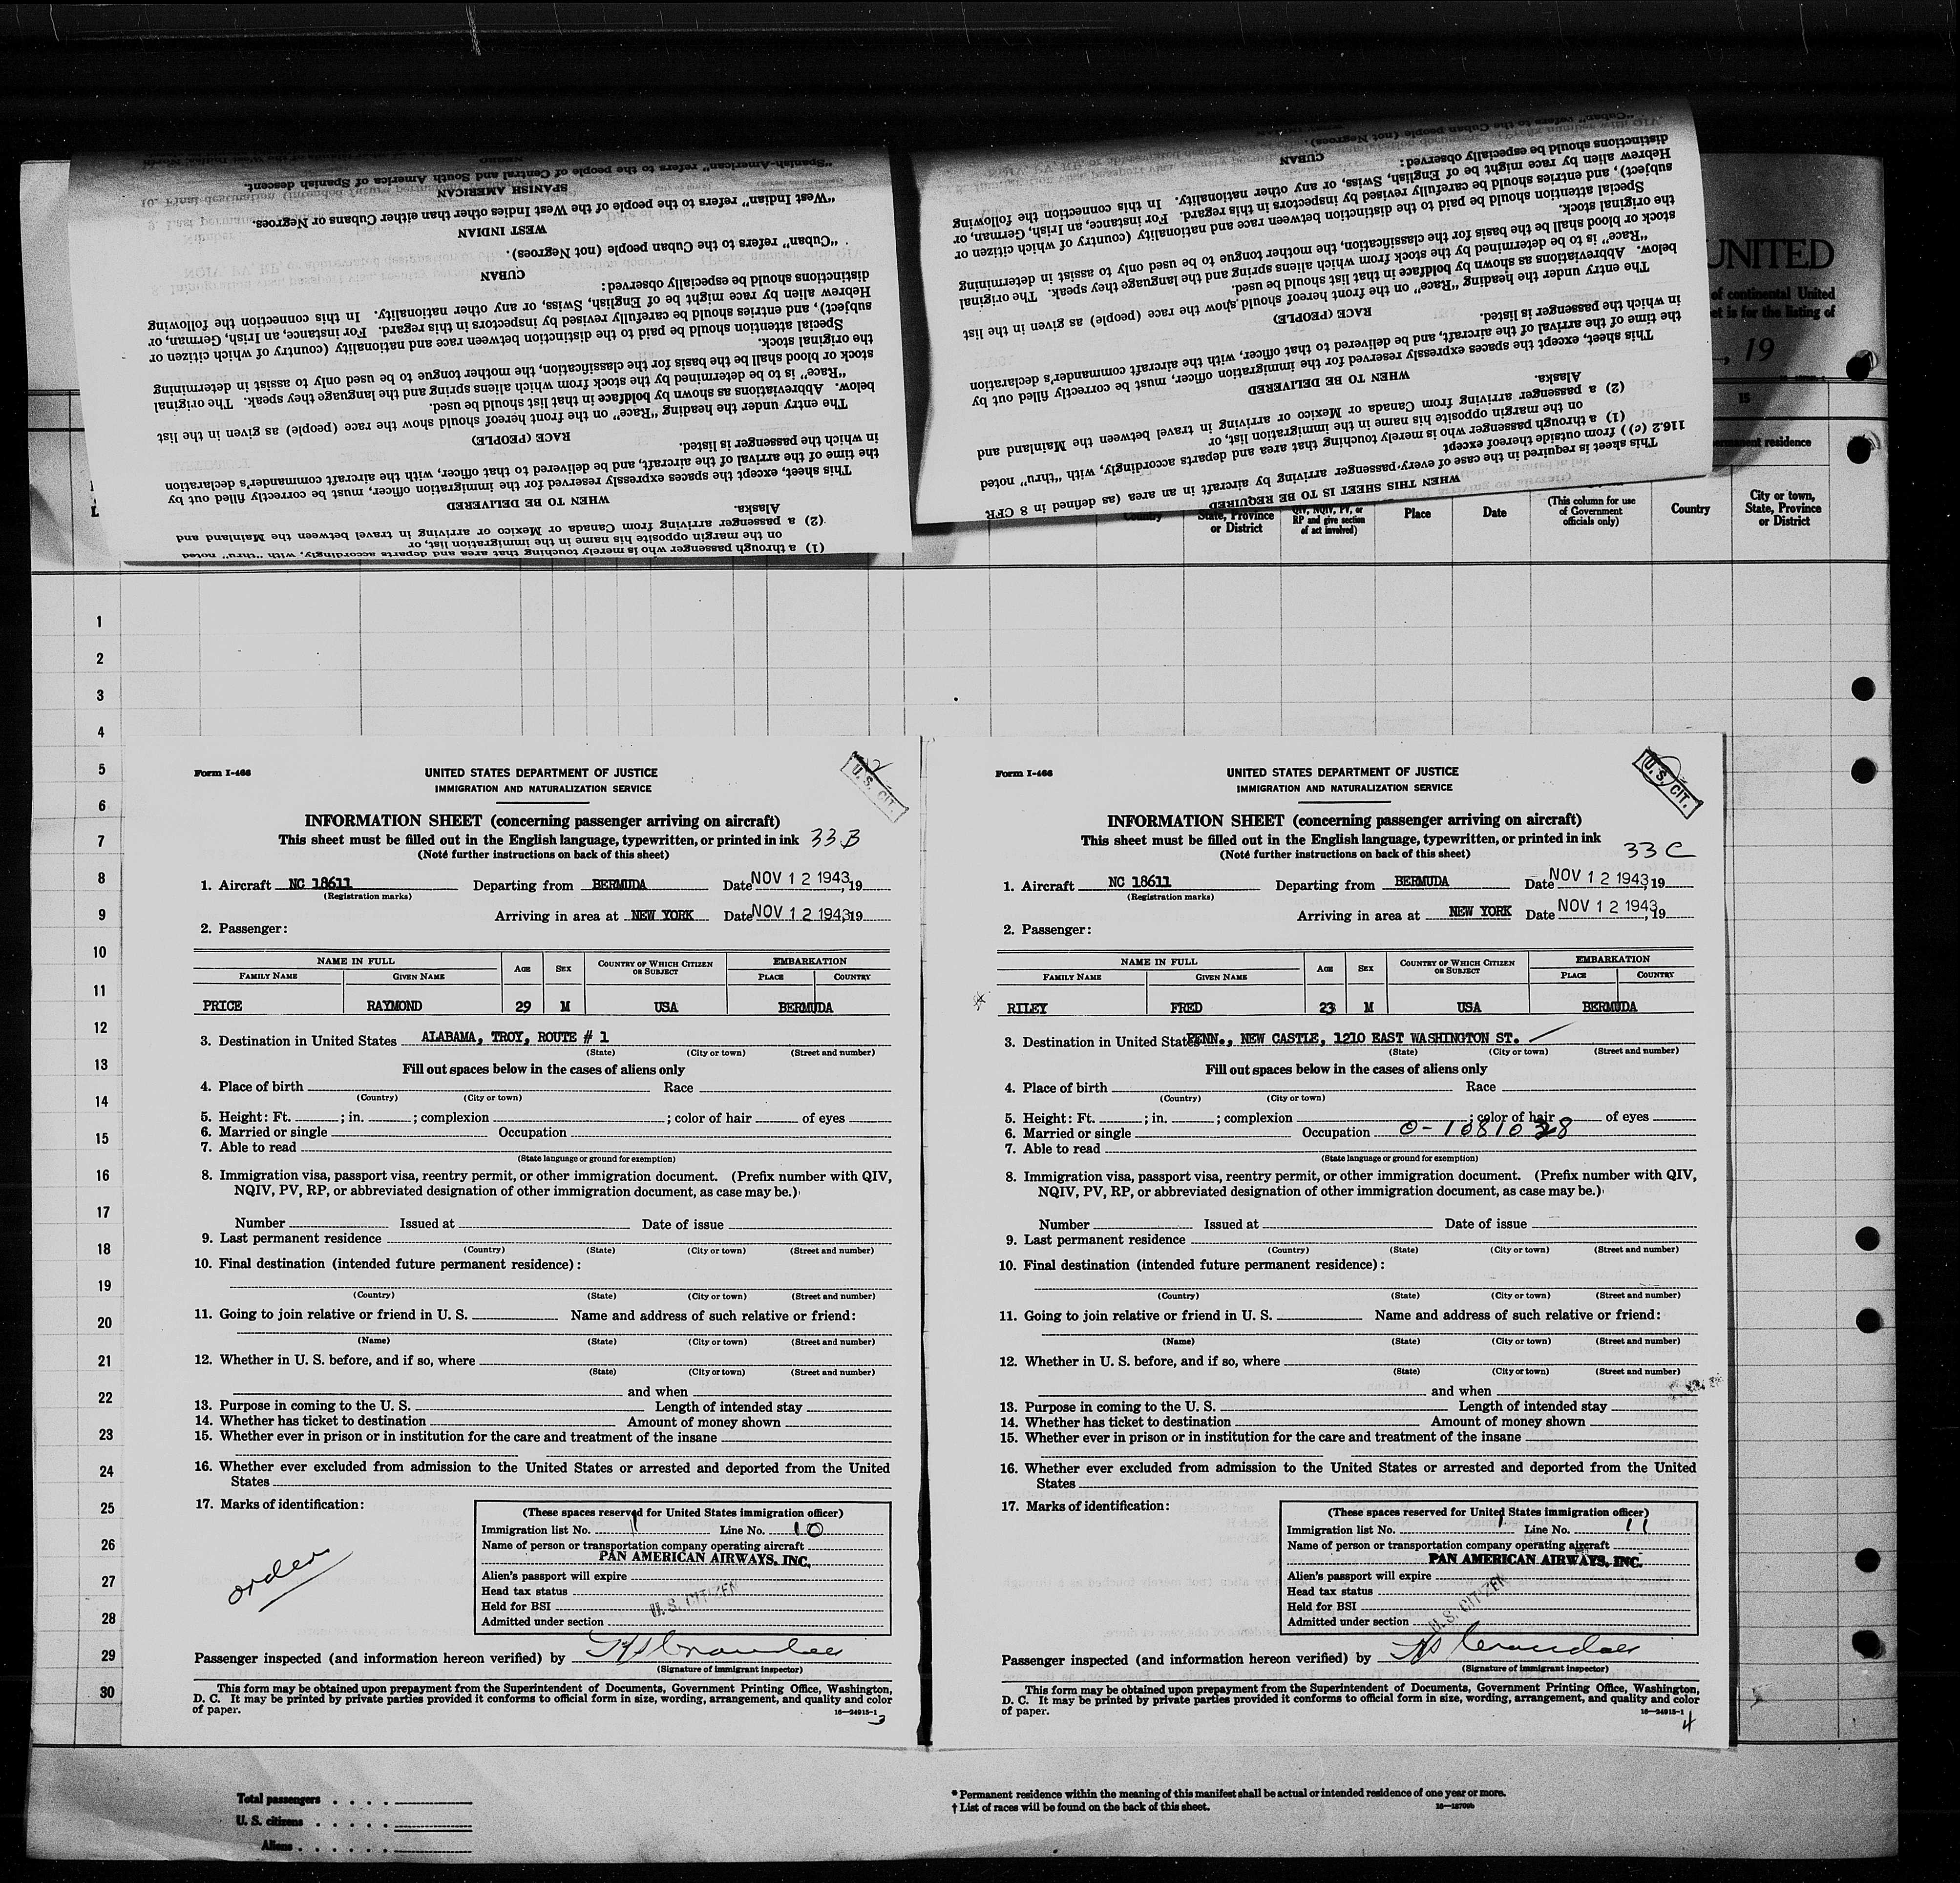 "Spanish-American" refers to the people of Central and South America of Spanish descent.
SPANISH AMERICAN
"West Indian" refers to the people of the West Indies other than either Cubans or Negroes.
WEST INDIAN
"Cuban" refers to the Cuban people (not Negroes).
CUBAN
distinctions should be especially observed:
Hebrew alien by race might be of English, Swiss, or any other nationality. In this connection the following
subject), and entries should be carefully revised by inspectors in this regard. For instance, an Irish, German, or
Special attention should be paid to the distinction between race and nationality (country of which citizen or
the original stock.
stock or blood shall be the basis for the classification, the mother tongue to be used only to assist in determining
"Race" is to be determined by the stock from which aliens spring and the language they speak. The original
below. Abbreviations as shown by boldface in that list should be used.
The entry under the heading "Race" on the front hereof should show the race (people) as given in the list
RACE (PEOPLE)
in which the passenger is listed.
the time of the arrival of the aircraft, and be delivered to that officer, with the aircraft commander's declaration
This sheet, except the spaces expressly reserved for the immigration officer, must be correctly filled out by
WHEN TO BE DELIVERED
Alaska.
(2) a passenger arriving from Canada or Mexico or arriving in travel between the Mainland and
on the margin opposite his name in the immigration list, or
(1) a through passenger who is merely touching that area and departs accordingly, with "thru" noted
"Cuban" refers to the Cuban people (not Negroes).
CUBAN
distinctions should be especially observed:
Hebrew alien by race might be of English, Swiss, or any other nationality. In this connection the following
subject), and entries should be carefully revised by inspectors in this regard. For instance, an Irish, German, or
Special attention should be paid to the distinction between race and nationality (country of which citizen or
the original stock.
stock or blood shall be the basis for the classification, the mother tongue to be used only to assist in determining
"Race" is to be determined by the stock from which aliens spring and the language they speak. The original
below. Abbreviations as shown by boldface in that list should be used.
The entry under the heading "Race" on the front hereof should show the race (people) as given in the list
RACE (PEOPLE)
in which the passenger is listed.
the time of the arrival of the aircraft, and be delivered to that officer, with the aircraft commander's declaration
This sheet, except the spaces expressly reserved for the immigration officer, must be correctly filled out by
WHEN TO BE DELIVERED
Alaska.
(2) a passenger arriving from Canada or Mexico or arriving in travel between the Mainland and
on the margin opposite his name in the immigration list, or
(1) a through passenger who is merely touching that area and departs accordingly, with "thru" noted
116.2 (c)) from outside thereof except
This sheet is required in the case of every passenger arriving by aircraft in an area (as defined in 8 CFR
WHEN THIS SHEET IS TO BE REQUIRED
UNITED
of continental United
et is for the listing of
, 19
15
permanent residence
Country
State, Province
or District
QIV, NQIV, PV, or
RP and give section
of act involved)
Place
Date
(This column for use
of Government
officials only)
Country
City or town,
State, Province
or District
1
2
3
4
5
6
7
8
9
10
11
12
13
14
15
16
17
18
19
20
21
22
23
24
25
26
27
28
29
30
Form I-466
UNITED STATES DEPARTMENT OF JUSTICE
IMMIGRATION AND NATURALIZATION SERVICE
U. S. CIT.
INFORMATION SHEET (concerning passenger arriving on aircraft)
This sheet must be filled out in the English language, typewritten, or printed in ink 33B
(Note further instructions on back of this sheet)
1. Aircraft NC 18611 Departing from BERMUDA Date NOV 12 1943, 19
(Registration marks)
Arriving in area at NEW YORK Date NOV 12 1943, 19
2. Passenger:
NAME IN FULL AGE SEX COUNTRY OF WHICH CITIZEN OR SUBJECT EMBARKATION
FAMILY NAME GIVEN NAME PLACE COUNTRY
PRICE RAYMOND 29 M USA BERMUDA
3. Destination in United States ALABAMA, TROY, ROUTE # 1
(State) (City or town) (Street and number)
Fill out spaces below in the cases of aliens only
4. Place of birth Race
(Country) (City or town)
5. Height: Ft. ; in. ; complexion ; color of hair of eyes
6. Married or single Occupation
7. Able to read
(State language or ground for exemption)
8. Immigration visa, passport visa, reentry permit, or other immigration document. (Prefix number with QIV,
NQIV, PV, RP, or abbreviated designation of other immigration document, as case may be.)
Number Issued at Date of issue
9. Last permanent residence
(Country) (State) (City or town) (Street and number)
10. Final destination (intended future permanent residence):
(Country) (State) (City or town) (Street and number)
11. Going to join relative or friend in U. S. Name and address of such relative or friend:
(Name) (State) (City or town) (Street and number)
12. Whether in U. S. before, and if so, where
(State) (City or town) (Street and number)
and when
13. Purpose in coming to the U. S. Length of intended stay
14. Whether has ticket to destination Amount of money shown
15. Whether ever in prison or in institution for the care and treatment of the insane
16. Whether ever excluded from admission to the United States or arrested and deported from the United
States
17. Marks of identification:
order
(These spaces reserved for United States immigration officer)
Immigration list No. 1 Line No. 10
Name of person or transportation company operating aircraft
PAN AMERICAN AIRWAYS, INC.
Alien's passport will expire
Head tax status
Held for BSI
U. S. CITIZEN
Admitted under section
Passenger inspected (and information hereon verified) by
(Signature of immigrant inspector)
This form may be obtained upon prepayment from the Superintendent of Documents, Government Printing Office, Washington,
D. C. It may be printed by private parties provided it conforms to official form in size, wording, arrangement, and quality and color
of paper. 16—24915-1
3
Form I-466
UNITED STATES DEPARTMENT OF JUSTICE
IMMIGRATION AND NATURALIZATION SERVICE
U. S. CIT.
INFORMATION SHEET (concerning passenger arriving on aircraft)
This sheet must be filled out in the English language, typewritten, or printed in ink
33C
(Note further instructions on back of this sheet)
1. Aircraft NC 18611 Departing from BERMUDA Date NOV 12 1943, 19
(Registration marks)
Arriving in area at NEW YORK Date NOV 12 1943, 19
2. Passenger:
NAME IN FULL AGE SEX COUNTRY OF WHICH CITIZEN OR SUBJECT EMBARKATION
FAMILY NAME GIVEN NAME PLACE COUNTRY
RILEY FRED 23 M USA BERMUDA
3. Destination in United States PENN., NEW CASTLE, 1210 EAST WASHINGTON ST.
(State) (City or town) (Street and number)
Fill out spaces below in the cases of aliens only
4. Place of birth Race
(Country) (City or town)
5. Height: Ft. ; in. ; complexion ; color of hair of eyes
6. Married or single Occupation O-1081028
7. Able to read
(State language or ground for exemption)
8. Immigration visa, passport visa, reentry permit, or other immigration document. (Prefix number with QIV,
NQIV, PV, RP, or abbreviated designation of other immigration document, as case may be.)
Number Issued at Date of issue
9. Last permanent residence
(Country) (State) (City or town) (Street and number)
10. Final destination (intended future permanent residence):
(Country) (State) (City or town) (Street and number)
11. Going to join relative or friend in U. S. Name and address of such relative or friend:
(Name) (State) (City or town) (Street and number)
12. Whether in U. S. before, and if so, where
(State) (City or town) (Street and number)
and when
13. Purpose in coming to the U. S. Length of intended stay
14. Whether has ticket to destination Amount of money shown
15. Whether ever in prison or in institution for the care and treatment of the insane
16. Whether ever excluded from admission to the United States or arrested and deported from the United
States
17. Marks of identification:
(These spaces reserved for United States immigration officer)
Immigration list No. 1 Line No. 11
Name of person or transportation company operating aircraft
PAN AMERICAN AIRWAYS, INC.
Alien's passport will expire
Head tax status
Held for BSI
U. S. CITIZEN
Admitted under section
Passenger inspected (and information hereon verified) by
(Signature of immigrant inspector)
This form may be obtained upon prepayment from the Superintendent of Documents, Government Printing Office, Washington,
D. C. It may be printed by private parties provided it conforms to official form in size, wording, arrangement, and quality and color
of paper. 16—24915-1
4
Total passengers
U. S. citizens
Aliens
* Permanent residence within the meaning of this manifest shall be actual or intended residence of one year or more.
† List of races will be found on the back of this sheet. 16—18709b